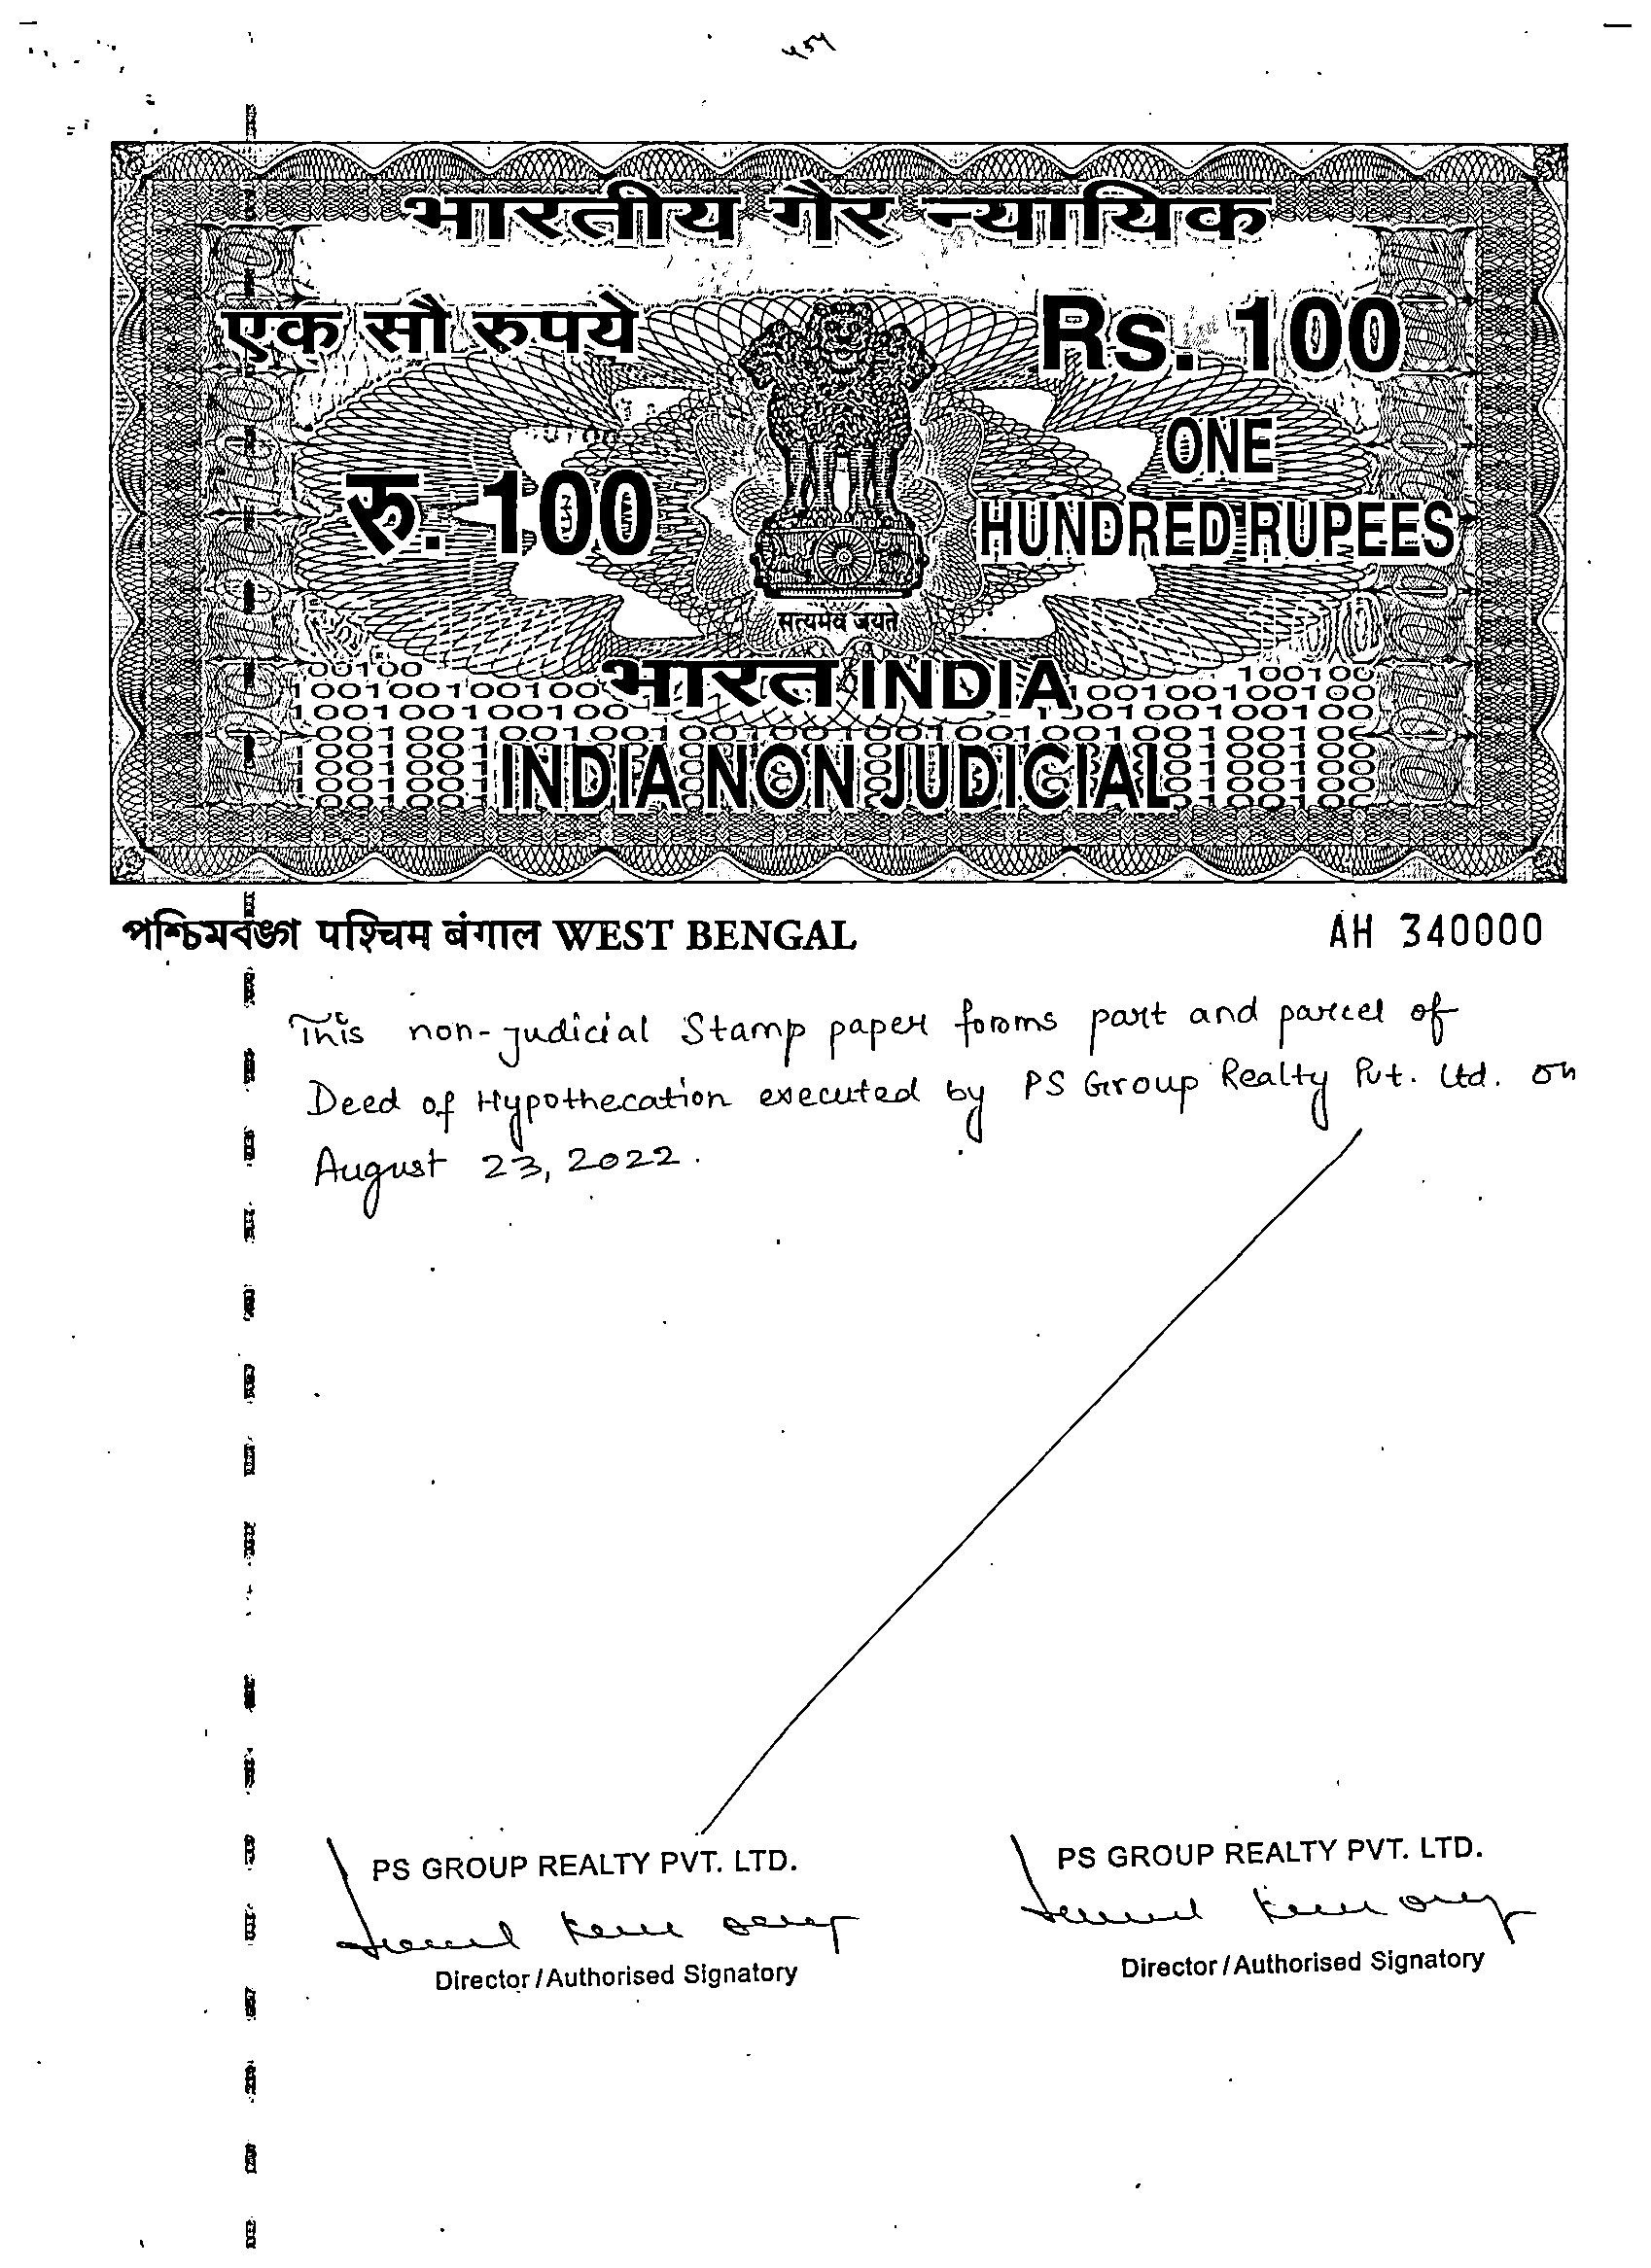 454
भारतीय गैर न्यायिक
एक सौ रुपये
Rs. 100
रु. 100
ONE
HUNDRED RUPEES
सत्यमेव जयते
भारत INDIA
INDIA NON JUDICIAL
পশ্চিমবঙ্গ पश्चिम बंगाल WEST BENGAL
AH 340000
This non-judicial Stamp paper forms part and parcel of
Deed of Hypothecation executed by PS Group Realty Pvt. Ltd. on
August 23, 2022.
PS GROUP REALTY PVT. LTD.
Director / Authorised Signatory
PS GROUP REALTY PVT. LTD.
Director / Authorised Signatory